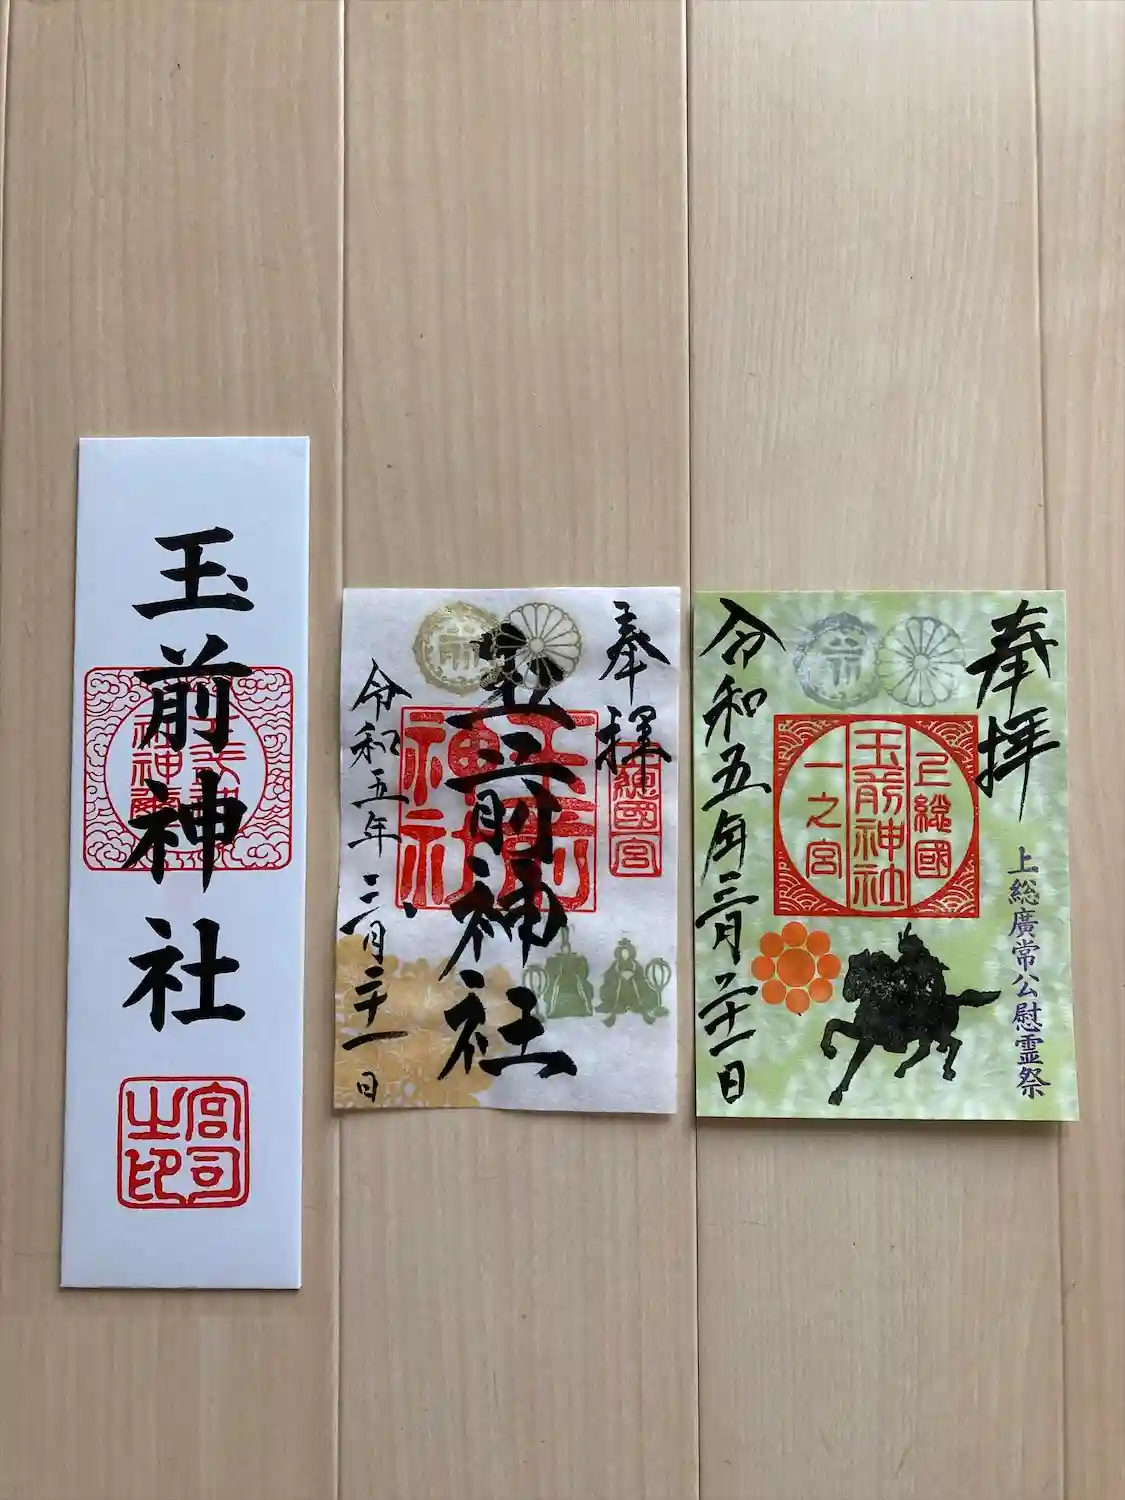 玉前神社
宮司
之印
奉拝
前神社
玉前
神社
令和五年三月二十一日
奉拝
上総廣常公慰霊祭
上総國
玉前神社
一之宮
令和五年三月二十一日